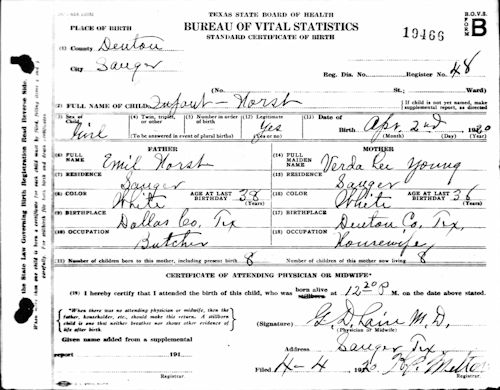 TEXAS STATE BOARD OF HEALTH
BUREAU OF VITAL STATISTICS
STANDARD CERTIFICATE OF BIRTH
B.O.V.S. FORM B
19466
PLACE OF BIRTH
(1) County Denton
City Sanger
Reg. Dis. No. Register No. 48
No. St. Ward)
(2) FULL NAME OF CHILD Infant - Horst { If child is not yet named, make supplemental report, as directed
(3) Sex of Child Girl
(4) Twin, triplet, or other
(5) Number in order of birth
(To be answered in event of plural births)
(12) Legitimate Yes
(13) Date of Birth Apr. 2nd 1920
(Month) (Day)
FATHER
MOTHER
(6) FULL NAME Emil Horst
(14) FULL MAIDEN NAME Verda Lee Young
(7) RESIDENCE Sanger
(15) RESIDENCE Sanger
(8) COLOR White AGE AT LAST BIRTHDAY 38 (Years)
(16) COLOR White AGE AT LAST BIRTHDAY 36 (Years)
(9) BIRTHPLACE Dallas Co, Tex
(17) BIRTHPLACE Denton Co, Tex,
(10) OCCUPATION Butcher
(18) OCCUPATION Housewife
(11) Number of children born to this mother, including present birth 8
Number of children of this mother now living 8
CERTIFICATE OF ATTENDING PHYSICIAN OR MIDWIFE*
(19) I hereby certify that I attended the birth of this child, who was born alive stillborn at 12 20 P M. on the date above stated.
*When there was no attending physician or midwife, then the father, householder, etc., should make this return. A stillborn child is one that neither breathes nor shows other evidence of life after birth.
(Signature) G. D. Lain M.D.
(Physician or Midwife)
Given name added from a supplemental
Address Sanger Tex
report 191
Filed 4-4 192
Registrar.
Registrar.
the State Law Governing Birth Registration Read Reverse Side.